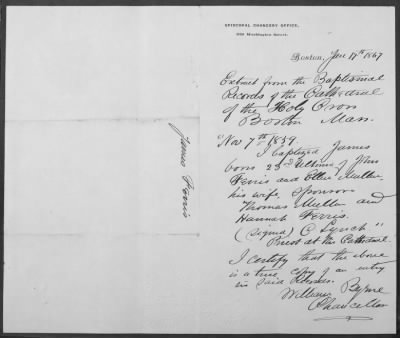 EPISCOPAL CHANCERY OFFICE,
Washington Street.
Boston, Jan 17th 1867
Extract from the Baptismal
Records of the Cathedral
of the Holy Cross
Boston Mass.
"Nov 7th 1839.
I baptized James
born 23rd Ultimo, of John
Ferris and Ellen Mullen
his wife, Sponsors
Thomas Mullen and
Hannah Ferris.
(Signed) C Lynch"
Priest at the Cathedral.
I certify that the above
is a true copy of an entry
in said Records.
William Byrne
Chancellor
James Ferris